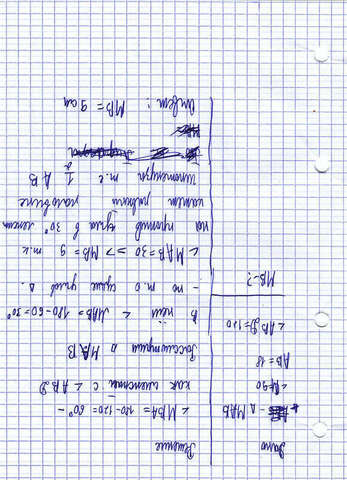 Дано
- Δ MAB
∠ A=90
AB = 18
∠ ABD = 120
MB - ?
Решение
∠ MBA = 180-120 = 60° -
как смежный с ∠ ABD
Рассмотрим Δ MAB
В нём ∠ MAB = 180-60=30°
- по т.о сумме углов Δ.
∠ MAB = 30 => MB = 9 т.к
на против угла в 30° лежит
катет равный половине
гипотенузы т.е 1/2 AB
Ответ: MB = 9 см